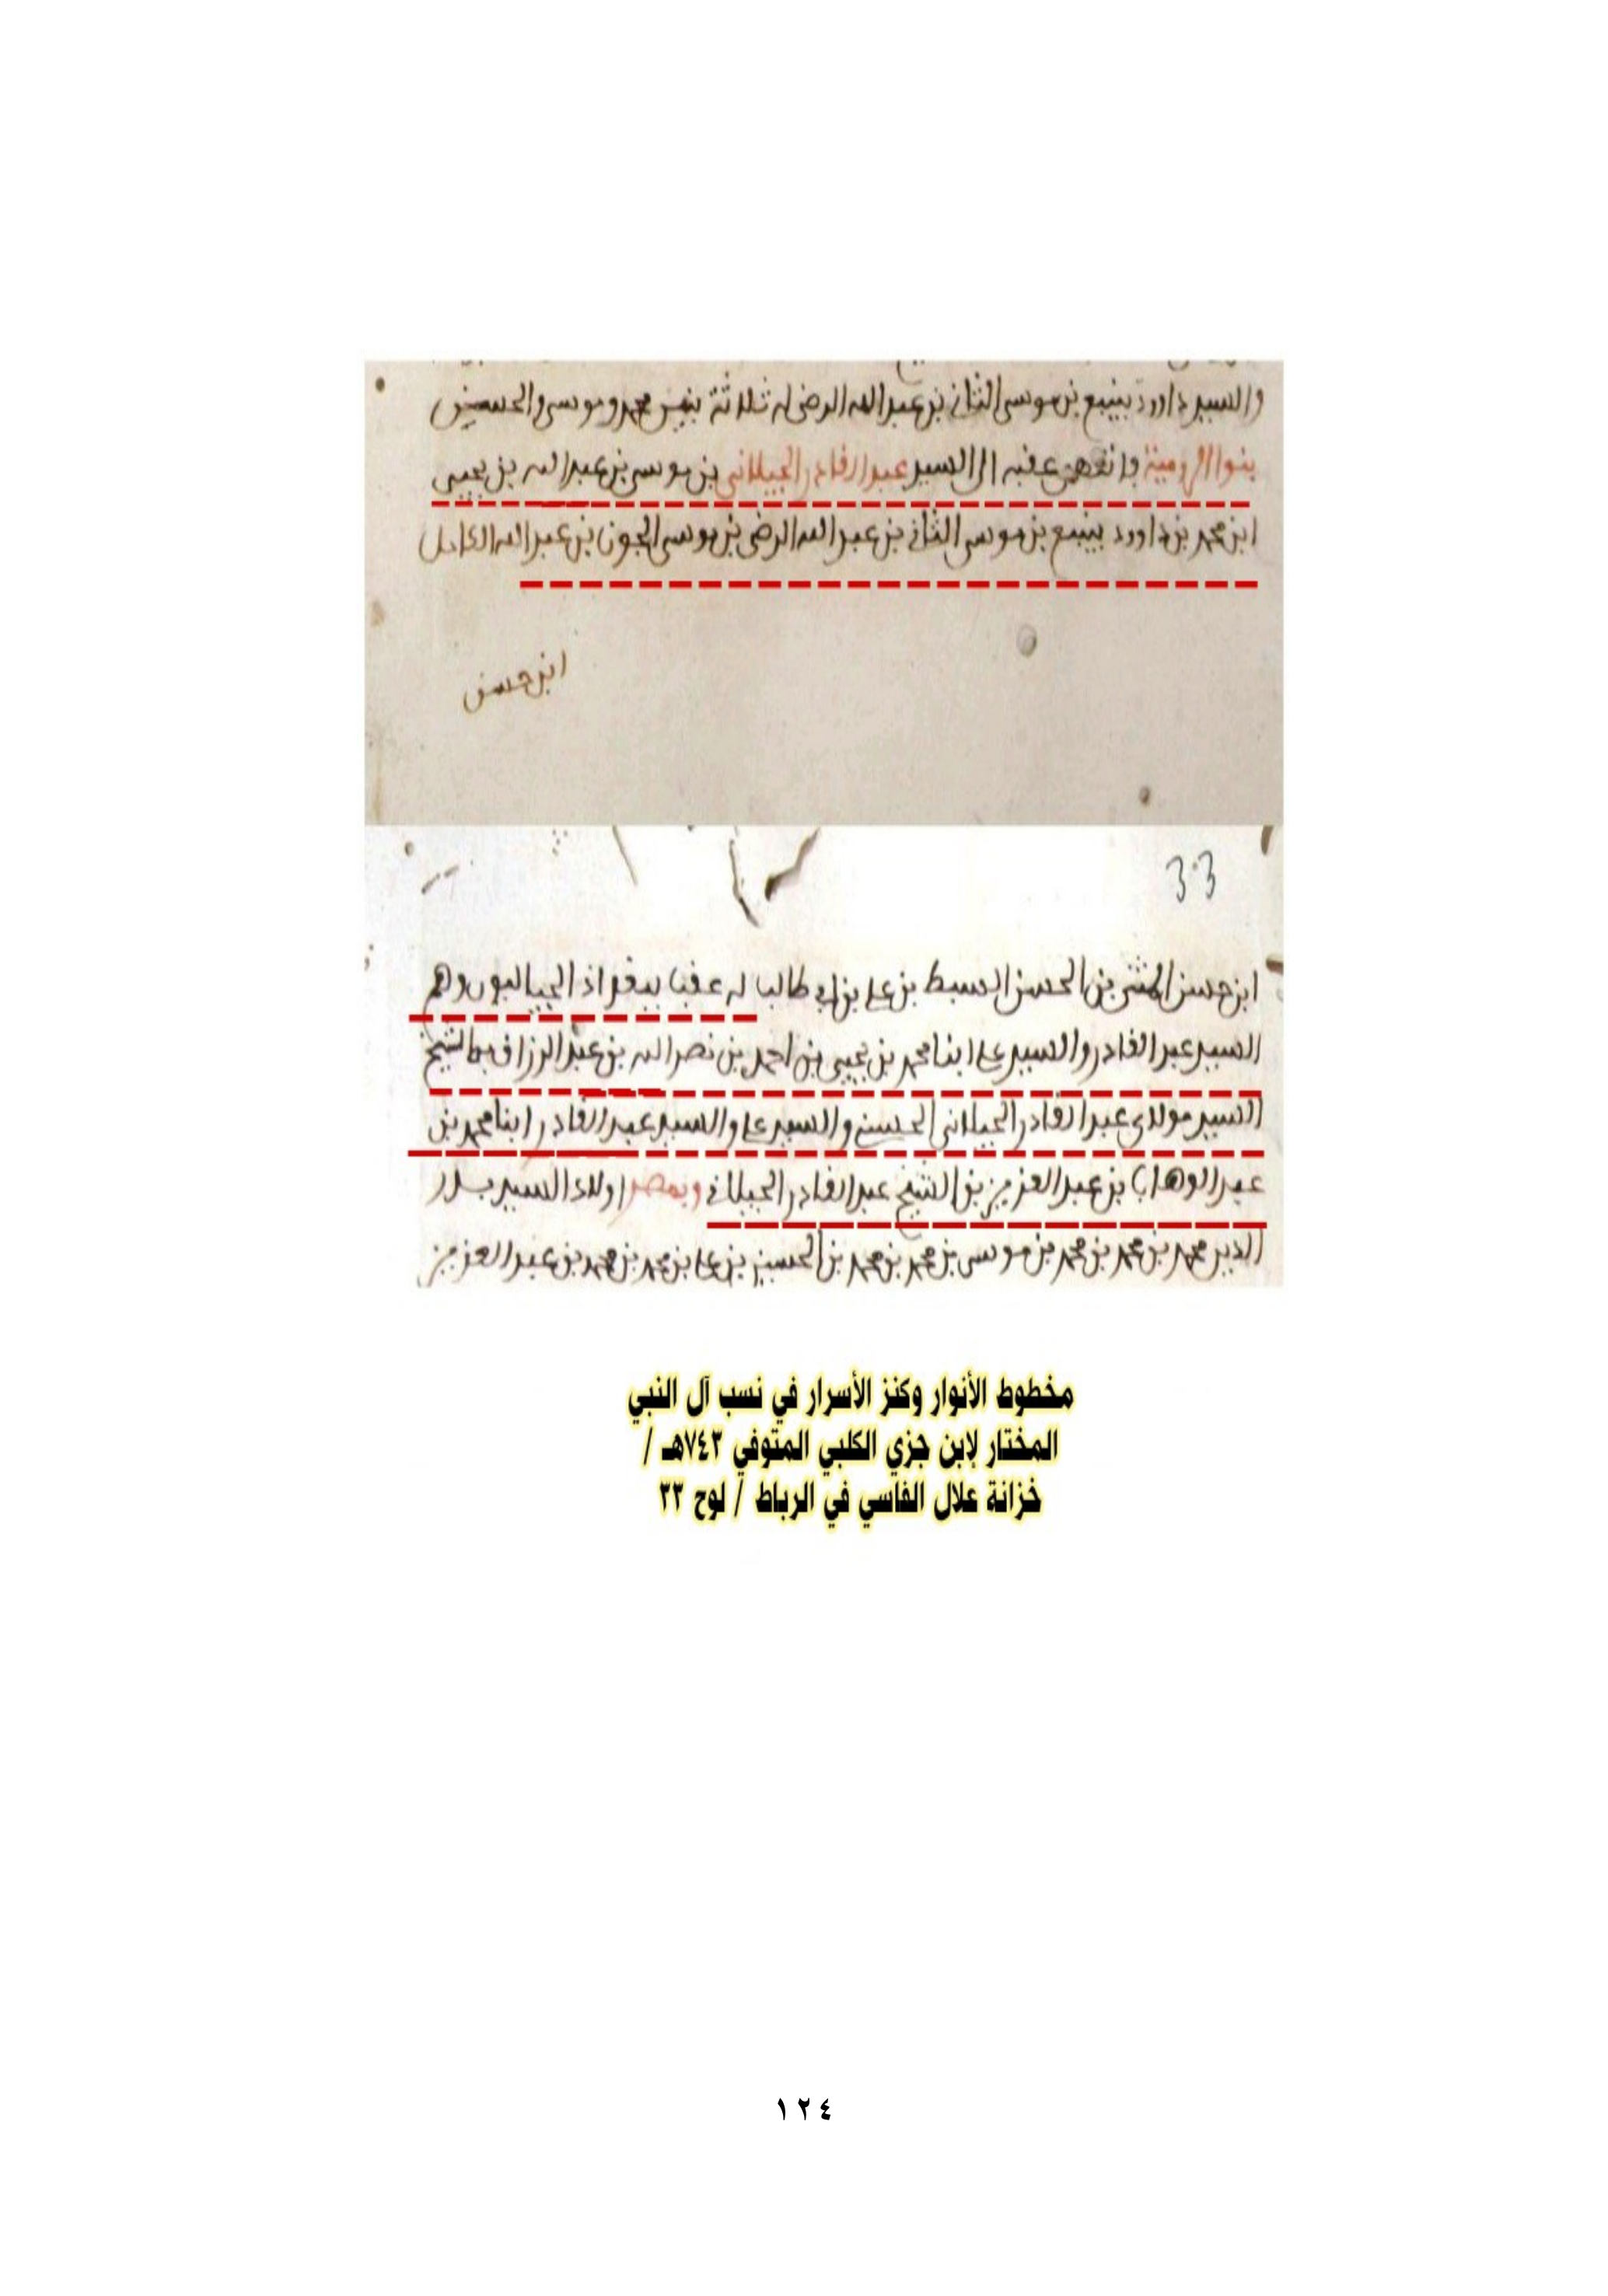 والسيد داوود بينبع بن موسى الثاني بن عبد الله الرضى له ثلاثة بنين محمد وموسى والحسين
بنوا الرومية وانتهى عقبه الى السيد عبد القادر الجيلاني بن موسى بن عبد الله بن يحيى
ابن محمد بن داوود بينبع بن موسى الثاني بن عبد الله الرضى بن موسى الجون بن عبد الله الكامل
ابن حسن
33
ابن حسن المثنى بن الحسن السبط بن علي بن ابي طالب له عقب ببغداد الجياليون وهم
السيد عبد القادر والسيد علي ابنا محمد بن يحيى بن احمد بن نصر الله بن عبد الرزاق بن الشيخ
السيد مولاي عبد القادر الجيلاني الحسني والسيد علي والسيد عبد القادر ابنا محمد بن
عبد الوهاب بن عبد العزيز بن الشيخ عبد القادر الجيلاني وبمصر اولاد السيد بدر
الدين محمد بن محمد بن محمد بن موسى بن محمد بن محمد بن الحسين بن علي بن محمد بن محمد بن عبد العزيز
مخطوط الأنوار وكنز الأسرار في نسب آل النبي
المختار لإبن جزي الكلبي المتوفي ٧٤٣هـ /
خزانة علال الفاسي في الرباط / لوح ٣٣
١٢٤